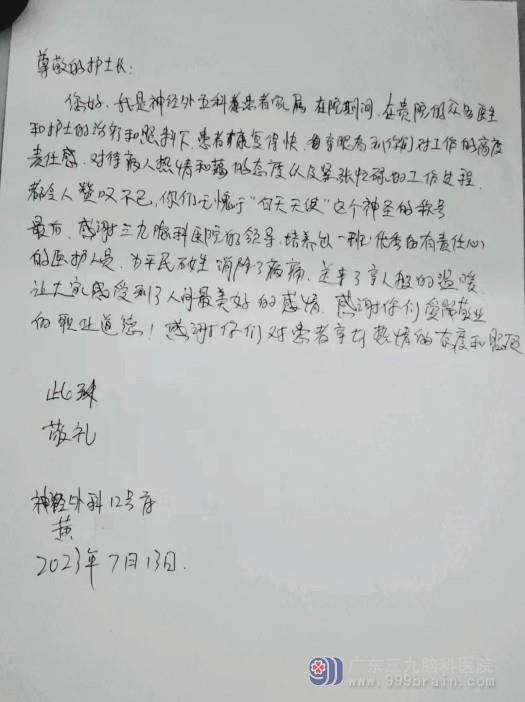 尊敬的护士长:
您好、我是神经外五科患者家属 在院期间、在贵院的众多医生
和护士的治疗和照料下、患者康复得快、亲眼看到你们对工作的高度
责任感、对待病人热情和蔼的态度以及紧张忙碌的工作过程、
都令人赞叹不已,你们无愧于“白天天使”这个神圣的称号
最后、感谢三九脑科医院的领导、培养出一批优秀的有责任心
的医护人员、为平民百姓消除了病痛、送来了亲人般的温暖
让大家感受到了人间最美好的感情、感谢你们爱岗敬业
的职业道德!感谢你们对患者亲切热情的态度和照顾
此致
敬礼
神经外科12号房
黄
2023年7月13日.
广东三九脑科医院
www.999brain.com